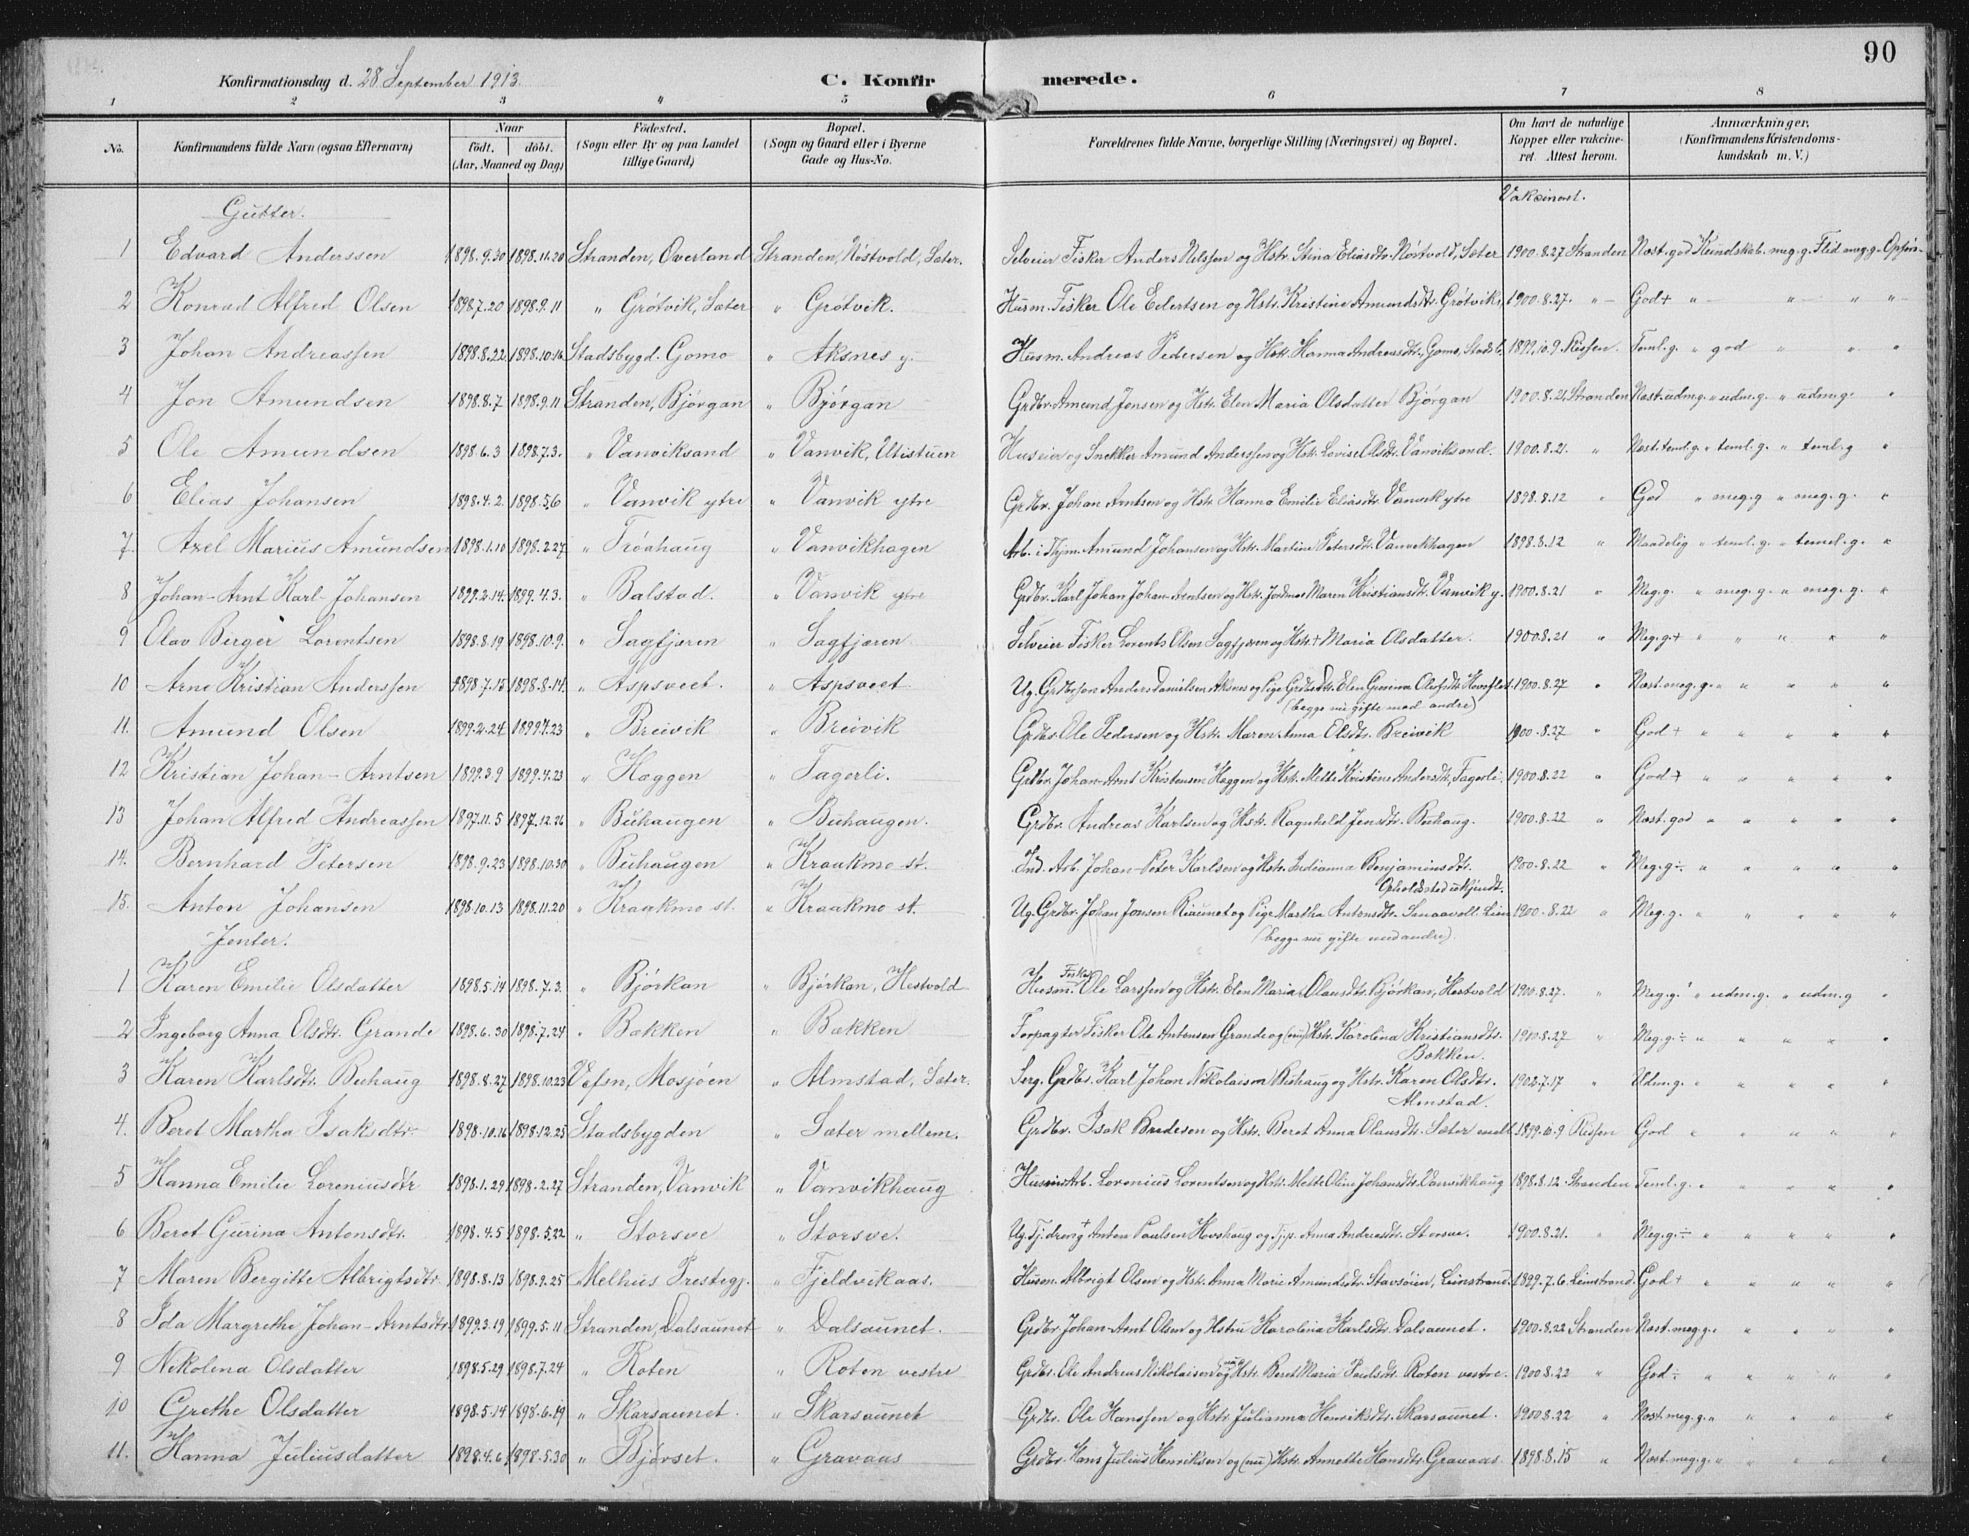 90
Konfirmationsdag d. 28 September 1913.
C. Konfirmerede.
1 2 3 4 5 6 7 8
No. Konfirmandens fulde Navn (ogsaa Efternavn) Naar født. døbt. (Aar, Maaned og Dag) Fødested. (Sogn eller By og paa Landet tillige Gaard) Bopæl. (Sogn og Gaard eller i Byerne Gade og Hus-No. Forældrenes fulde Navne, borgerlige Stilling (Næringsvei) og Bopæl. Om havt de naturlige Kopper eller vakcineret. Attest herom. Anmærkninger. (Konfirmandens Kristendomskundskab m. V.)
Vakcineret.
Gutter.
1 Edvard Anderssen 1898.9.30 1898.11.20 Stranden, Overland Stranden, Nöstvold, Sæter. Selveier Fisker Anders Nilssen og Hstr. Stina Eliasdtr. Nöstvold, Sæter 1900.8.27 Stranden Næst. god Kundskab. meg. g. Flid meg. g. Opförs.
2 Konrad Alfred Olsen 1898.7.20 1898.9.11 " Grötvik, Sæter " Grötvik. Husm. Fisker Ole Eilertsen og Hstr. Kristine Amundsdtr. Grötvik, 1900.8.27. " God+ " " " "
3 Johan Andreassen 1898.8.22 1898.10.16 Stadsbygd. Gomo " Aksnes y. Husm. Andreas Pedersen og Hstr. Hanna Andreasdtr. Gomo, Stadsb. 1899.10.9. Rissen. Teml. g. " god " " "
4 Jon Amundsen 1898.8.7 1898.9.11 Stranden, Björgan " Björgan Grdbr. Amund Jonsen og Hstr. Elen Maria Olsdatter Björgan 1900.8.21 Stranden Næst. udm. g. " udm. g. " udm. g. "
5 Ole Amundsen 1898.6.3 1898.7.3. " Vanviksand " Vanvik, Utistuen Huseier og Snekker Amund Anderssen og Hstr. Lovise Olsdtr. Vanviksand. 1900.8.21. " Næst. teml. g. " teml. g. " teml. g "
6 Elias Johansen 1898.4.2. 1898.5.6 " Vanvik ytre " Vanvik ytre Grdbr. Johan Arntsen og Hstr. Hanna Emilie Eliasdtr. Vanvik ytre 1898.8.12 " God " meg. g " meg. g. "
7. Axel Marius Amundsen 1898.1.10 1898.2.27 " Tröahaug " Vanvikhagen Arb. i Thjm. Amund Johansen og Hstr. Martine Petersdtr. Vanvikhagen 1898.8.12 " Maadelig " teml. g. " teml. g. "
8 Johan-Arnt Karl-Johansen 1899.2.14. 1899.4.3. " Balstad. " Vanvik ytre Grdbr. Karl Johan Johan-Arntsen og Hstr. Maren Kristiansdtr. Vanvik y. 1900.8.21 " Meg. g. " meg. g. " meg. g. "
9 Olav Berger Lorentsen 1898.8.19 1898.10.9. " Sagfjæren " Sagfjæren. Selveier Fisker Lorents Olsen Sagfjæren og Hstr+ Maria Olsdatter. 1900.8.21 " Meg. g+ " " " " "
10 Arne Kristian Anderssen 1898.7.15 1898.8.14. " Aspsveet. " Aspsveet Ug. Grdbrsøn Anders Danielsen Aksnes og Pige Elen Gurina Olsdtr. 1900.8.27 " Næst. meg. g. " " " " "
(begge nu gifte med andre)
11. Amund Olsen 1899.2.24 1899.4.23 " Breivik " Breivik Grdbr. Ole Pedersen og Hstr. Maren Anna Olsdtr. Breivik 1900.8.27 " God+ " " " " "
12 Kristian Johan-Arntsen 1899.3.9 1899.4.23 " Hæggen " Fagerli. Grdbr. Johan-Arnt Kristensen Hæggen og Hstr. Mette Kristine Andersdtr. Fagerli. 1900.8.22 " God+ " " " " "
13 Johan Alfred Andreassen 1897.11.5 1897.12.26 " Buhaugen " Buhaugen. Grdbr. Andreas Karlsen og Hstr. Ragnhild Jensdtr. Buhaug. 1900.8.22 " Næst. god " " " " "
14. Bernhard Petersen 1898.9.23 1898.10.30 " Buhaugen " Kraakmo st. Ind. Arb. Johan-Peter Karlsen og Hstr. Indianna Benjaminsdtr. 1900.8.22 " Meg. g÷ " " " " "
Opholdsted ukjendt.
15. Anton Johansen 1898.10.13 1898.11.20 " Kraakmo st. " Kraakmo st. Ug. Grdbr. Johan Jonsen Riaunet og Pige Martha Antonsdtr. Lien 1900.8.22 " Meg. g. " " " " "
(begge nu gifte med andre).
Jenter.
1 Karen Emilie Olsdatter 1898.5.14 1898.7.3. " Björkan " Björkan, Hestvold Husm. Fisker Ole Larssen og Hstr. Elen Maria Olausdtr. Björkan, Hestvold 1900.8.27. " Meg. g. " udm. g. " udm. g "
2 Ingeborg Anna Olsdtr. Grande 1898.6.30 1898.7.24 " Bækken " Bækken Forpagter Fisker Ole Antonsen Grande og (nu) Hstr. Karolina Kristiansdtr. 1900.8.27 " Meg. g÷ " " " " "
Bækken.
3 Karen Karlsdtr. Buhaug 1898.8.27 1898.10.23 Vefsn, Mosjöen " Almstad, Sæter. Serg. Grdbr. Karl Johan Nikolaisen Buhaug og Hstr. Karen Olsdtr. 1902.7.17 " Udm. g. " " " " "
Almstad.
4. Beret Martha Isaksdtr. 1898.10.16 1898.12.25 Stadsbygden " Sæter mellem. Grdbr. Isak Bredesen og Hstr. Beret Anna Olausdtr. Sæter mell. 1899.10.9 Rissen God " " " " "
5 Hanna Emilie Loreniusdtr 1898.1.29 1898.2.27 Stranden, Vanvik " Vanvikhaug Arb. Lorenius Lorentsen og Hstr. Mette Oline Johansdtr. Vanvikhaug 1898.8.12. Stranden Teml. g. " " " " "
6 Beret Gurina Antonsdtr. 1898.4.5 1898.5.22 " Storsve " Storsve. Ug. Tj.dreng+ Anton Paulsen Hovshaug og Tj.p. Anna Andreasdtr. Storsve. 1900.8.21. " Meg. g÷ " " " " "
7 Maren Bergitte Albrigtsdtr 1898.8.13 1898.9.25 Melhus Prestegj. " Fjeldvikaas. Husm. Albrigt Olsen og Hstr. Anna Marie Amundsdtr. Stavsöien, Leinstrand. 1899.7.6 Leinstrand. God+ " " " " "
8 Ida Margrethe Johan-Arntsdtr 1899.3.19 1899.5.11 Stranden, Dalsaunet " Dalsaunet. Grdbr. Johan-Arnt Olsen og Hstru Karolina Karlsdtr. Dalsaunet. 1900.8.22 Stranden Næst. meg. g. " " " " "
9 Nikolina Olsdatter 1898.5.29 1898.7.24 " Roten " Roten vestre Grdbr. Ole Andreas Nikolaisen og Hstr. Beret Maria Paulsdtr. Roten vestre. 1900.8.22 " God÷ " " " " "
10 Grethe Olsdatter 1898.5.14 1898.6.19 " Skarsaunet. " Skarsaunet Grdbr. Ole Hanssen og Hstr. Julianna Henriksdtr. Skarsaunet. 1900.8.22 " Næst. meg. g. " " " " "
11. Hanna Juliusdatter 1898.4.6 1898.5.30 " Björset. " Gravaas Grdbr. Hans Julius Henriksen og (nu) Hstr. Annette Hansdtr. Gravaas 1898.8.15 " Næst. meg. g. " " " " "